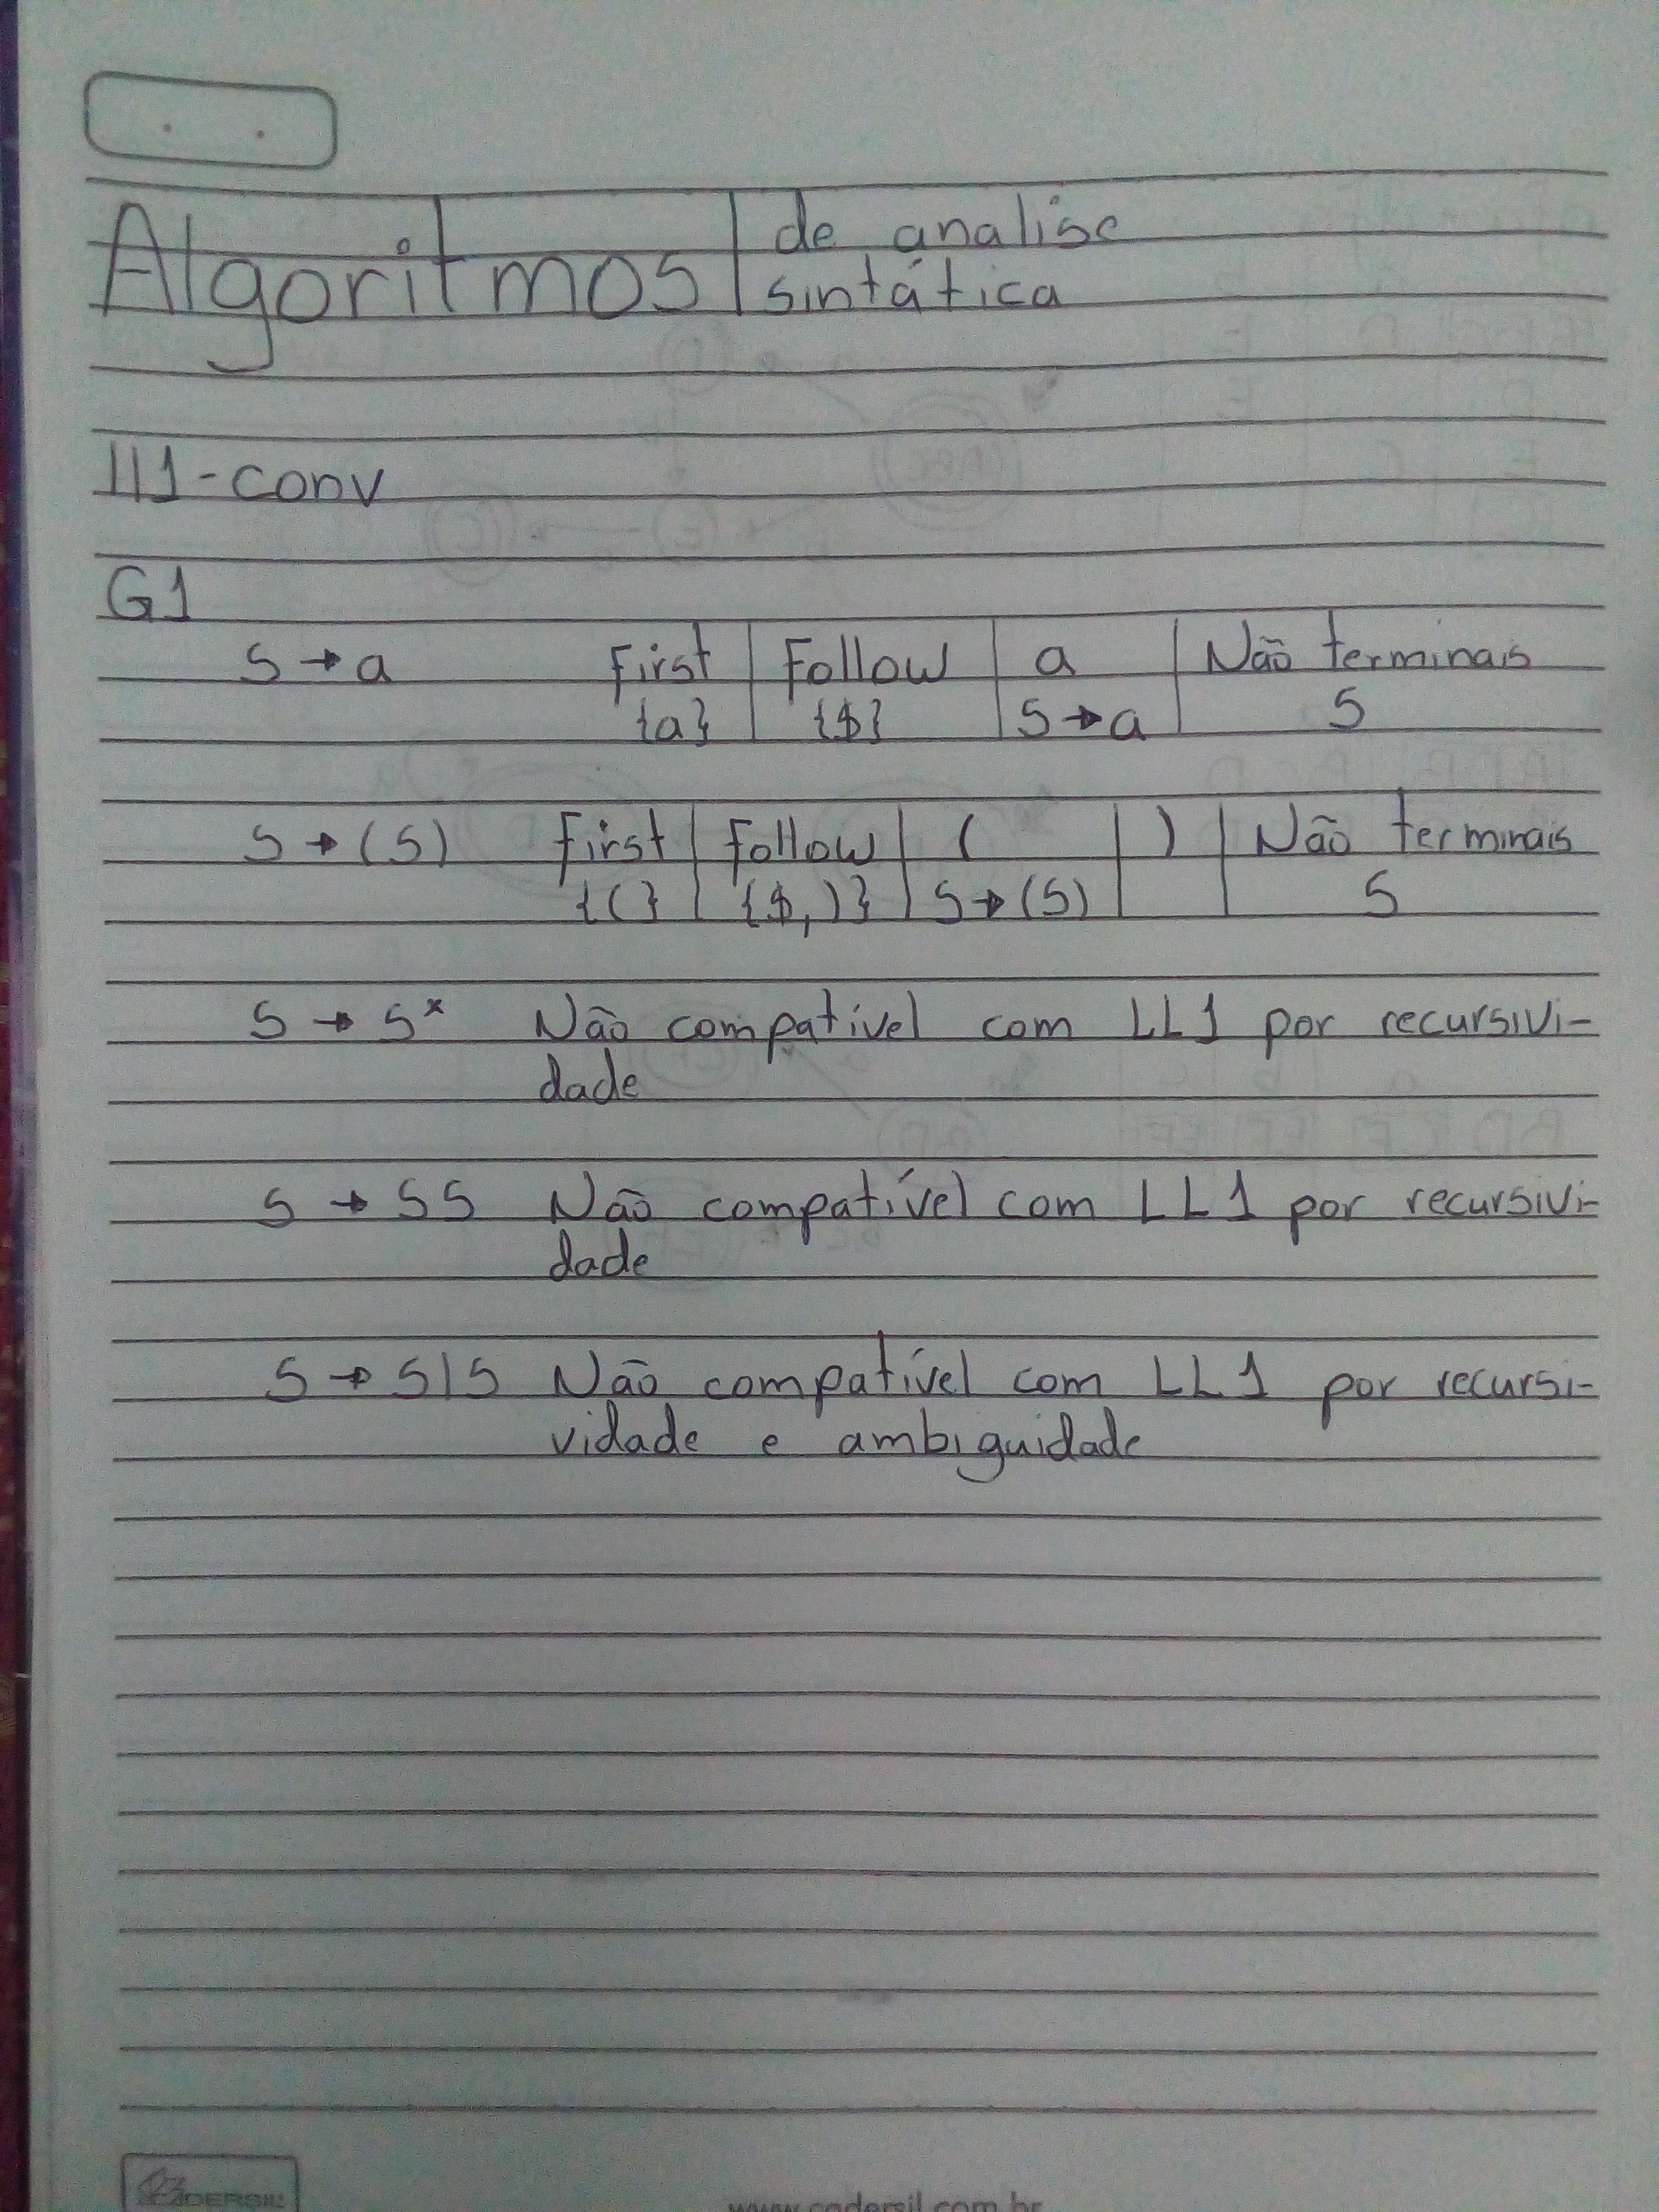 Algoritmos de analise
sintática
ll1-conv
G1
S → a First Follow a Não terminais
{a} {$} S → a S
S → (S) First Follow ( ) Não terminais
{(} {$,)} S → (S) S
S → S* Não compativel com LL1 por recursivi-
dade
S → SS Não compatível com LL1 por recursivi-
dade
S → S|S Não compatível com LL1 por recursi-
vidade e ambiguidade